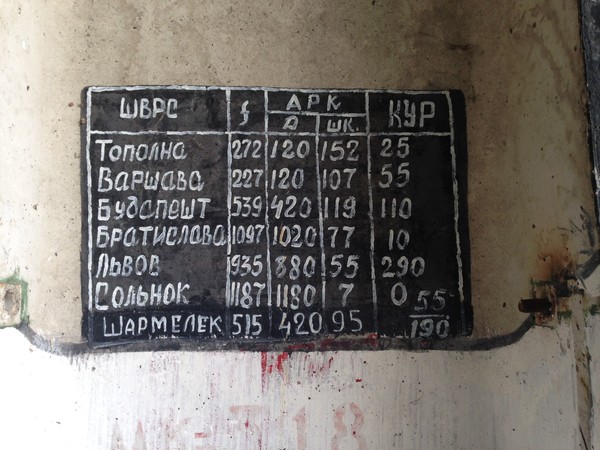 ШВРС f АРК КУР
Д ШК.
Тополна 272 120 152 25
Варшава 227 120 107 55
Будапешт 539 420 119 110
Братислава 1097 1020 77 10
Львов 935 880 55 290
Сольнок 1187 1180 7 0
Шармелек 515 420 95 55/190